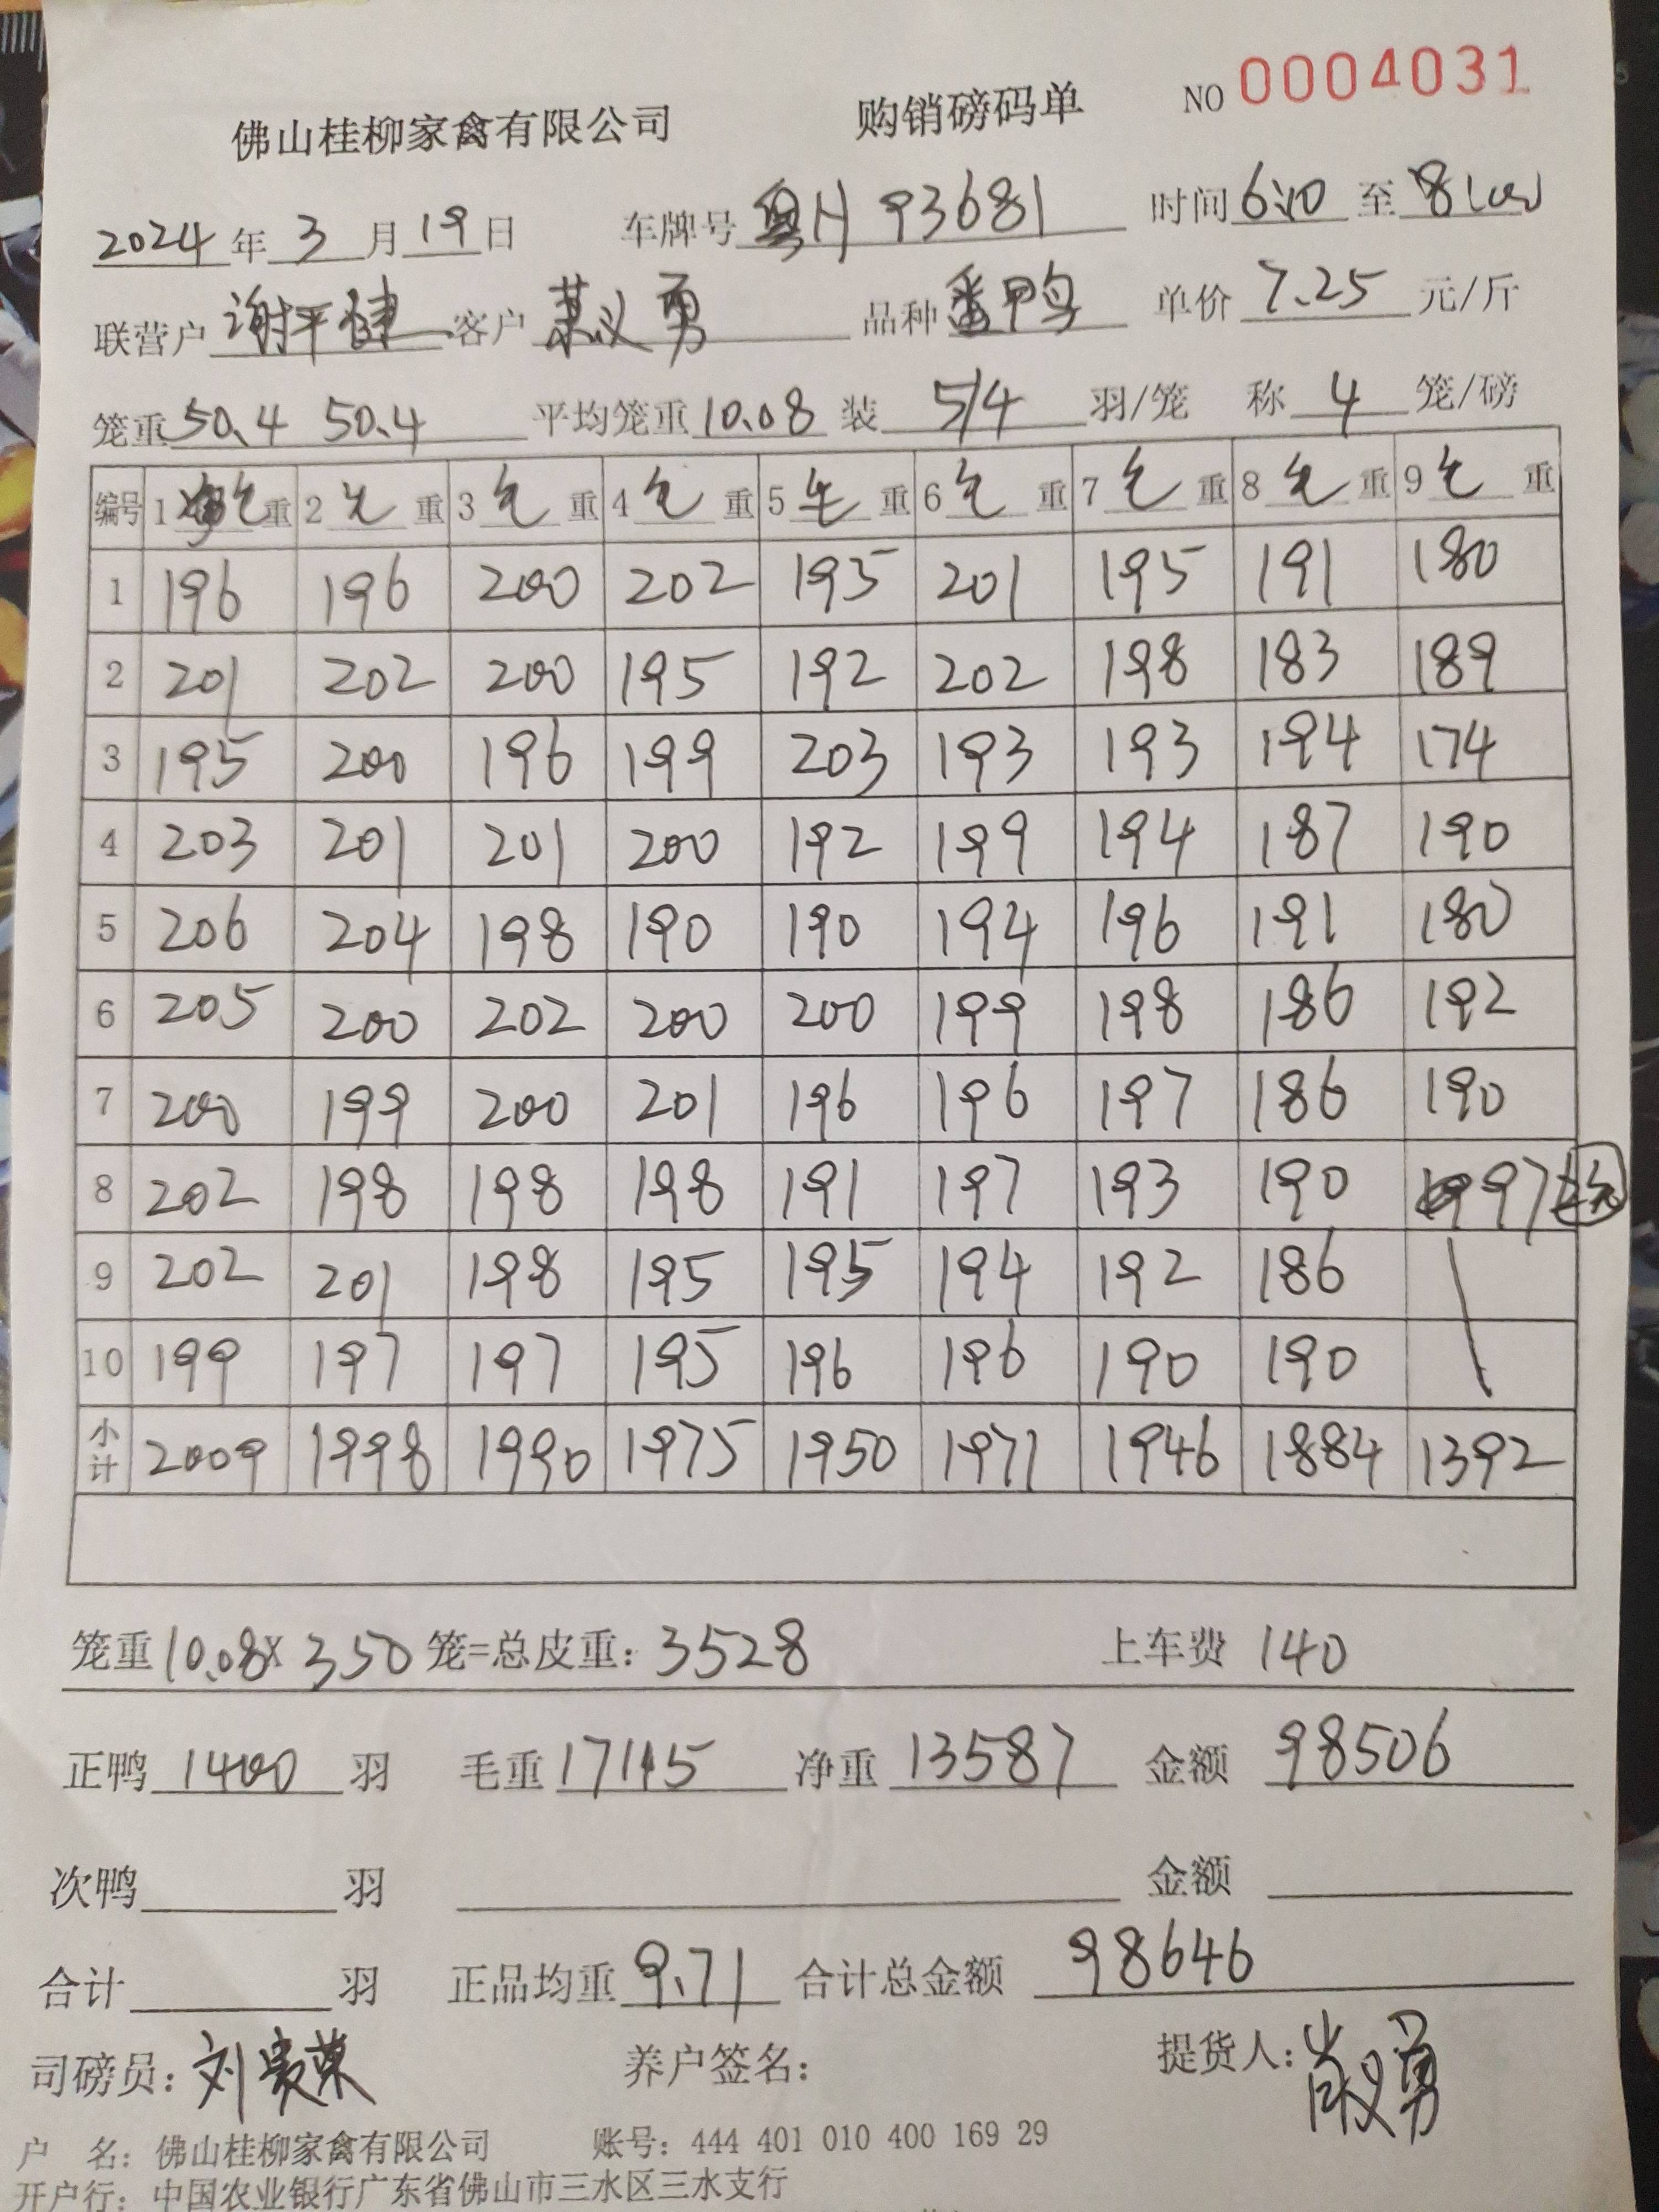 NO 0004031
佛山桂柳家禽有限公司 购销磅码单
2024年3月19日 车牌号 粤H 93681 时间 6:10 至 8:00
联营户 谢平健 客户 义勇 品种 番鸭 单价 7.25 元/斤
笼重 50.4 50.4 平均笼重 10.08 装 5/4 羽/笼 称 4 笼/磅
编号 1 毛重 2 毛重 3 毛重 4 毛重 5 毛重 6 毛重 7 毛重 8 毛重 9 毛重
1 196 196 200 202 195 201 195 191 180
2 201 202 200 195 192 202 198 183 189
3 195 200 196 199 203 193 193 194 174
4 203 201 201 200 192 199 194 187 190
5 206 204 198 190 190 194 196 191 180
6 205 200 202 200 200 199 198 186 192
7 200 199 200 201 196 196 197 186 190
8 202 198 198 198 191 197 193 190 97
9 202 201 198 195 195 194 192 186
10 199 197 197 195 196 196 190 190
小计 2009 1998 1990 1975 1950 1971 1946 1884 1392
笼重 10.08 X 350 笼=总皮重: 3528 上车费 140
正鸭 1400 羽 毛重 17115 净重 13587 金额 98506
次鸭 羽 金额
合计 羽 正品均重 9.71 合计总金额 98646
司磅员: 刘贵荣 养户签名: 提货人: 义勇
户 名: 佛山桂柳家禽有限公司 账号: 444 401 010 400 169 29
开户行: 中国农业银行广东省佛山市三水区三水支行